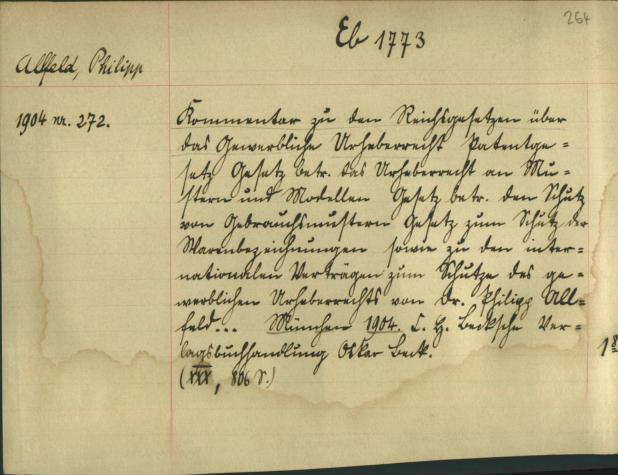 264
Eb 1773
Allfeld, Philipp
1904 nr. 272.
Kommentar zu den Reichsgesetzen über
das Gewerbliche Urheberrecht Patentge=
setz Gesetz betr. das Urheberrecht an Mu=
stern und Modellen Gesetz betr. den Schutz
von Gebrauchsmustern Gesetz zum Schutz der
Warenbezeichnungen sowie zu den inter=
nationalen Verträgen zum Schutze des ge=
werblichen Urheberrechts von Dr. Philipp All=
feld... München 1904. C. H. Becksche Ver=
lagsbuchhandlung Oskar Beck.
(XXX, 806 S.)